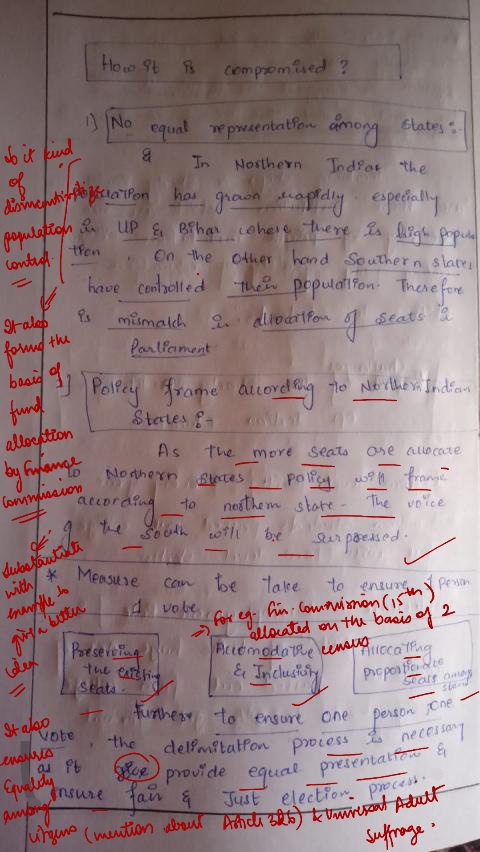 How it is compromised ?
1) No equal representation among States :-
& In Northern Indian the
population has grown rapidly especially
in UP & Bihar where there is high popula
tion. On the other hand Southern states
have controlled their population. Therefore
is mismatch in allocation of seats in
Parliament.
] Policy frame according to Northern Indian
States :-
As the more seats are allocate
to Northern states, policy will frame
according to nothern state. The voice
of the South will be surpressed.
* Measure can be take to ensure 1 person
1 vote
Preserving
the existing
seats.
Accomodative
& Inclusivity
Allocating
proportionate
seats among
state
Furthere to ensure one person, one
vote, the delimitation process is necessary
as it give provide equal presentation &
ensure fair & Just election process.
So it kind
of
disincentivize
population
control.
It also
forms the
basis of
fund
allocation
by Finance
commission
Substantiate
with
example to
give a better
idea
=> For eg. Fin. Commission (15th)
allocated on the basis of 2
census
It also
ensures
Equality
among
citizens (mention about Article 326) & Universal Adult
Suffrage.